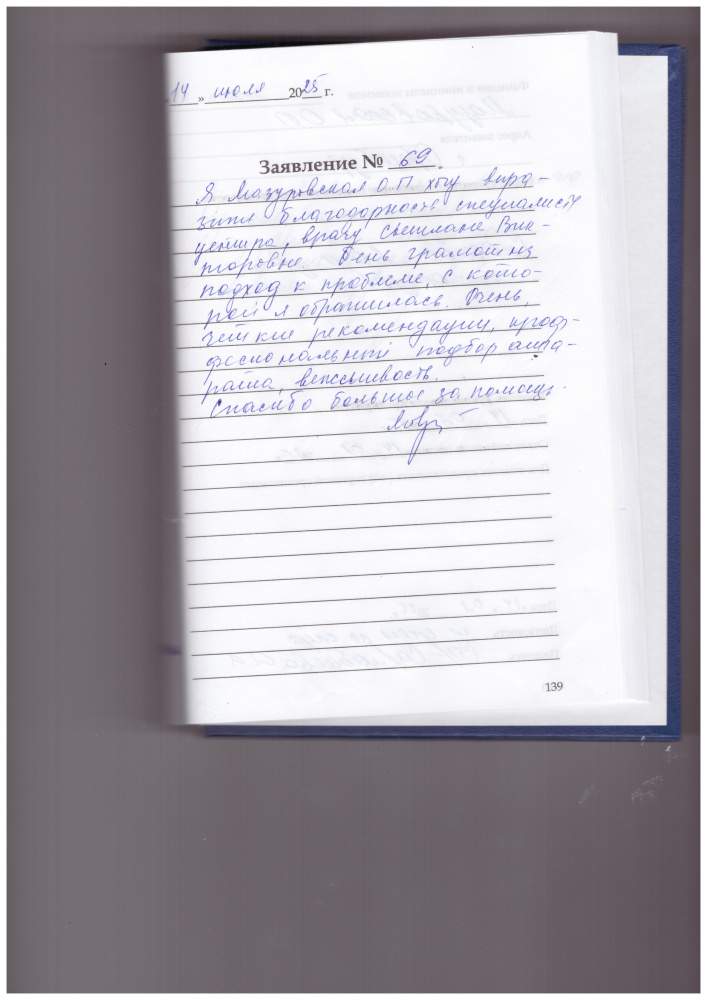 14 » июля 2025 г.
Заявление № 69
Я Мазуровская О.П. хочу выра-
зить благодарность специалисту
центра, врачу Светлане Вик-
торовне. Очень грамотный
подход к проблеме, с кото-
рой я обратилась. Очень
четкие рекомендации, проф-
фессиональный подбор аппа-
рата, вежливость.
Спасибо большое за помощь.
139